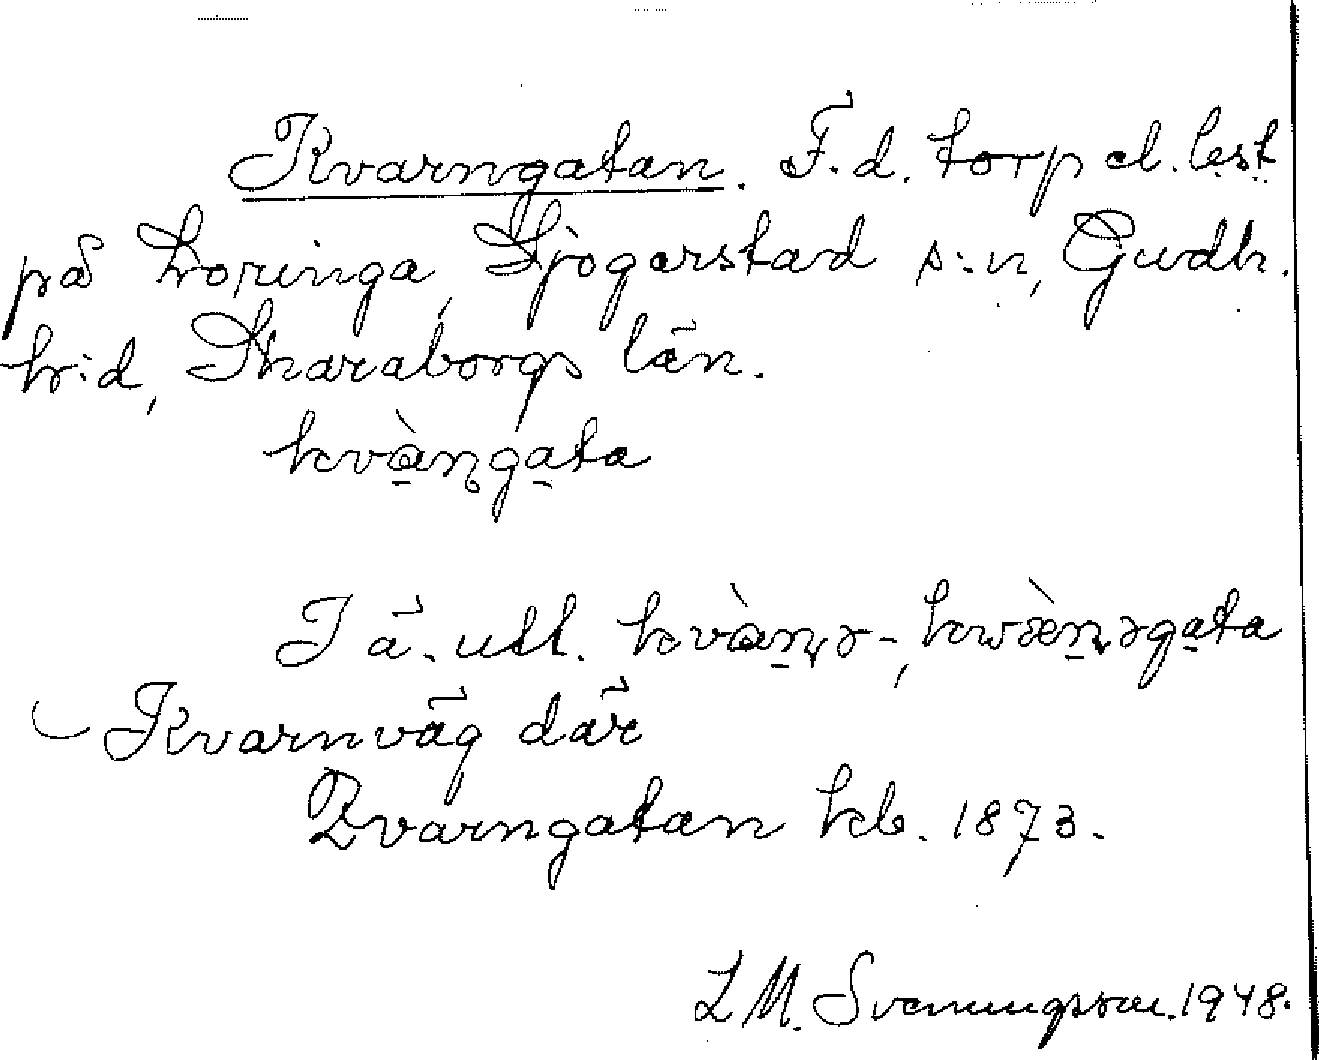 Kvarngatan. F.d. torp el. lest
på Loringa, Sjogerstad s:n, Gudh.
hr:d, Skaraborgs län.
kvàṉgata
I ä. utt. kvàṉə-, kwæ̀ṉəgata
Kvarnväg där
Qvarngatan kb. 1873.
L M. Svenungsson. 1948.